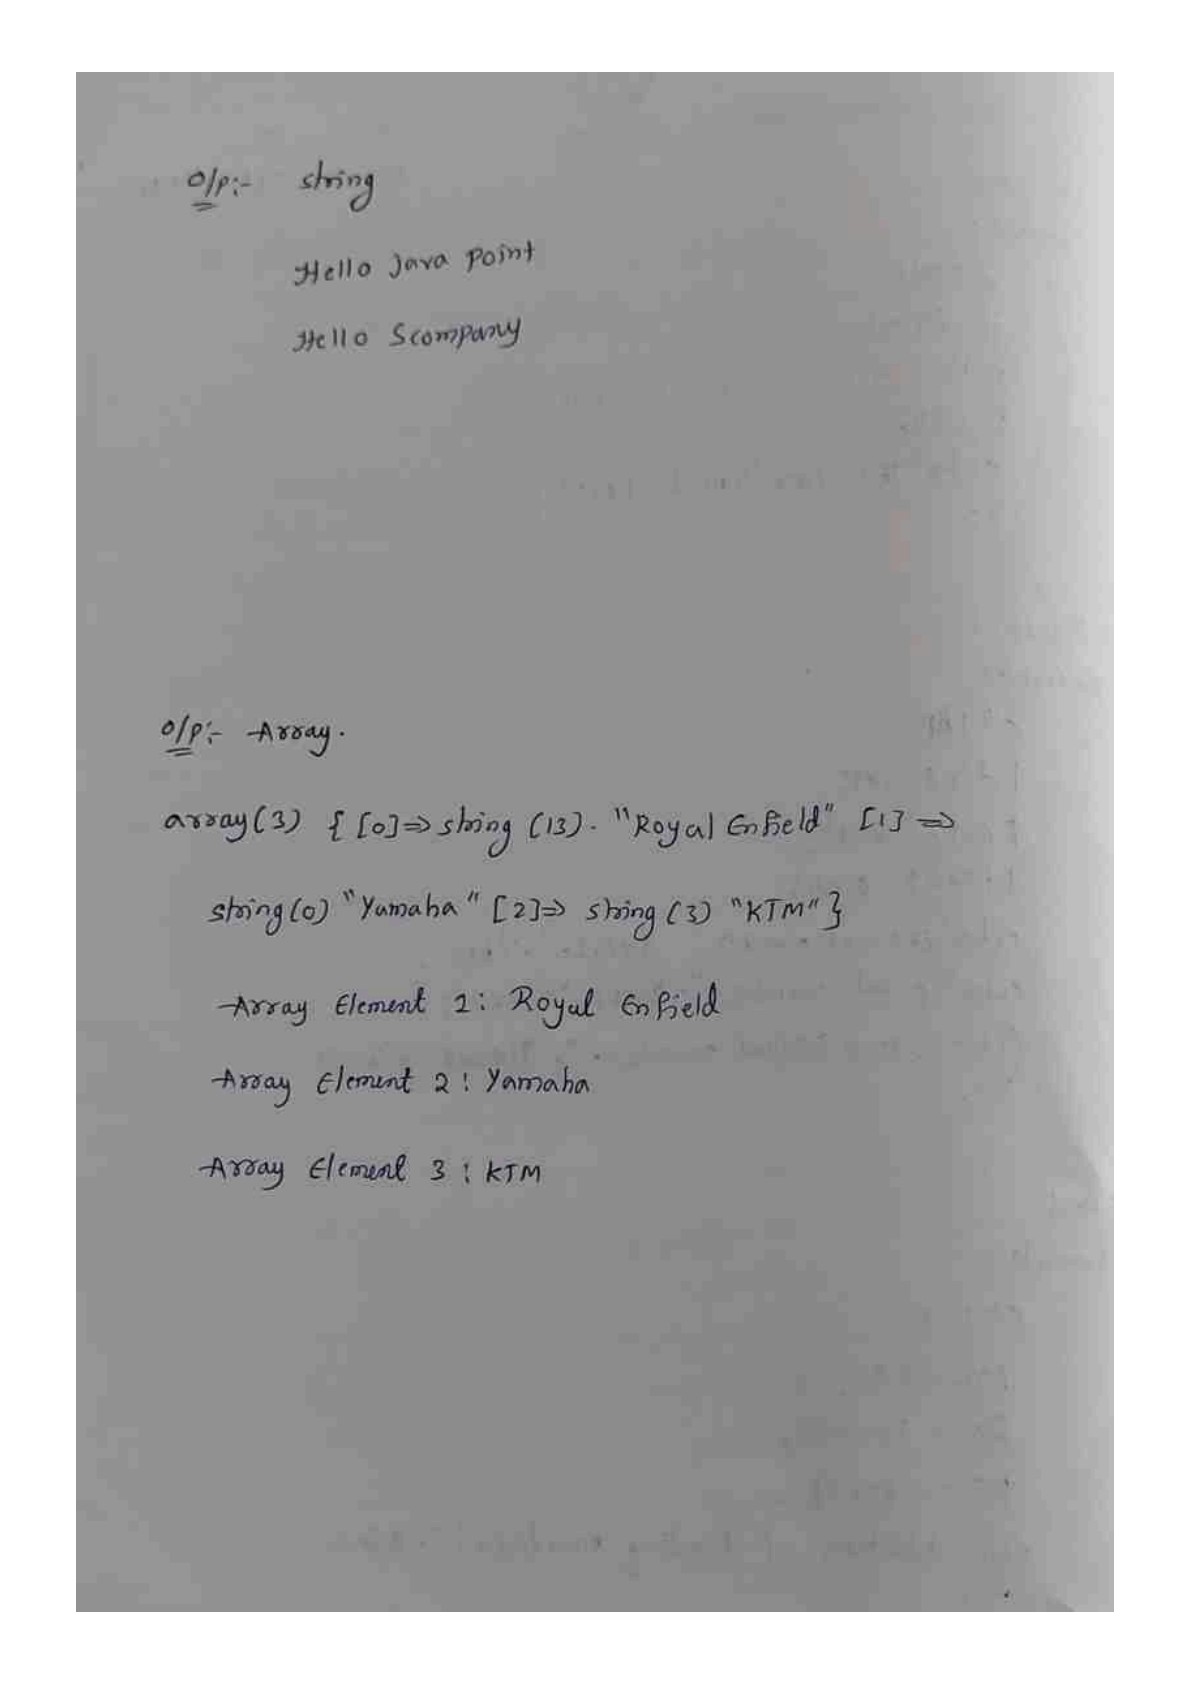 O/P:- string
Hello Java Point
Hello Scompany
O/P:- Array.
array(3) { [0]=> string (13). "Royal Enfield" [1] =>
string(0) "Yamaha" [2]=> string (3) "KTM" }
Array Element 1: Royal Enfield
Array Element 2: Yamaha
Array Element 3: KTM